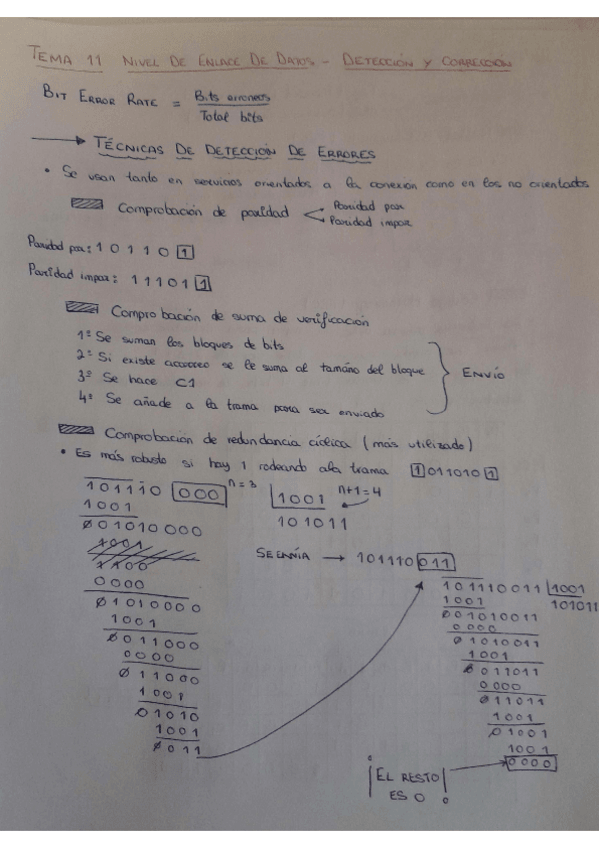 TEMA 11 NIVEL DE ENLACE DE DATOS - DETECCIÓN Y CORRECCIÓN
BIT ERROR RATE = Bits erroneos / Total bits
TÉCNICAS DE DETECCIÓN DE ERRORES
• Se usan tanto en servicios orientados a la conexión como en los no orientados
Comprobación de paridad
Paridad par
Paridad impar
Paridad par: 1 0 1 1 0 1
Paridad impar: 1 1 1 0 1 1
Comprobación de suma de verificación
1º Se suman los bloques de bits
2º Si existe acarreo se le suma al tamaño del bloque
3º Se hace C1
4º Se añade a la trama para ser enviado
ENVÍO
Comprobación de redundancia cíclica (más utilizado)
• Es más robusto si hay 1 rodeando a la trama 1 011010 1
101110 000 n=3 1001 n+1=4
1001 101011
001010000
1001
1100
0000
01010000
1001
0011000
0000
011000
1001
01010
1001
0011
SE ENVÍA → 101110 011
101110011 1001
1001 101011
001010011
0000
01010011
1001
0011011
0000
011011
1001
01001
1001
0000
¡EL RESTO
ES 0!